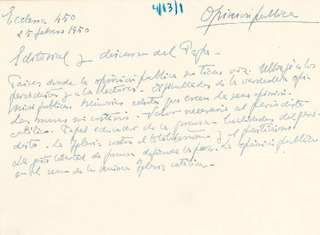 Ecclesia 450
4/13/1
Opinión pública
25 febrero 1950
Editorial y discurso del Papa.
Países donde la opinión pública no tiene voz. Ultraje a los
periodistas y a los lectores. Dificultades de la verdadera opi-
nión pública. Minorías selectas que crean la sana opinión.
Las masas sin criterio. Valor necesario al periodista
católico. Papel educador de la prensa. Cualidades del perio-
dista. La Iglesia contra el totalitarismo y el
La justa libertad de prensa defiende la paz. La opinión pública
en el seno de la misma Iglesia católica.